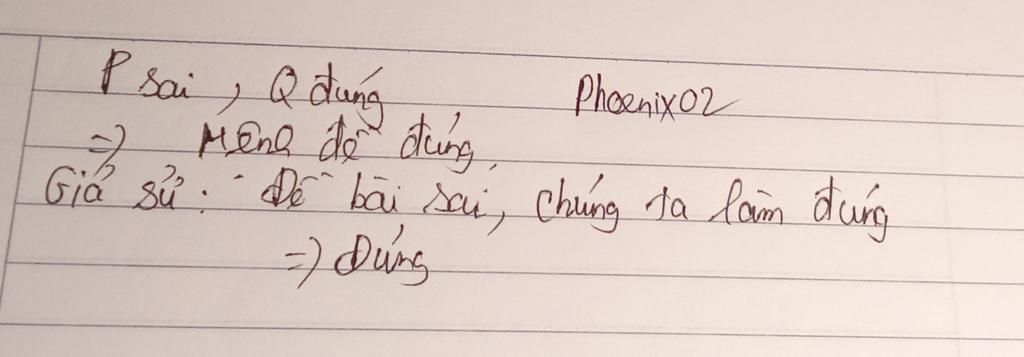 P sai, Q đúng
Phoenix02
=> Mệnh đề đúng.
Giả sử: Đề bài sai, chúng ta làm đúng
=> Đúng